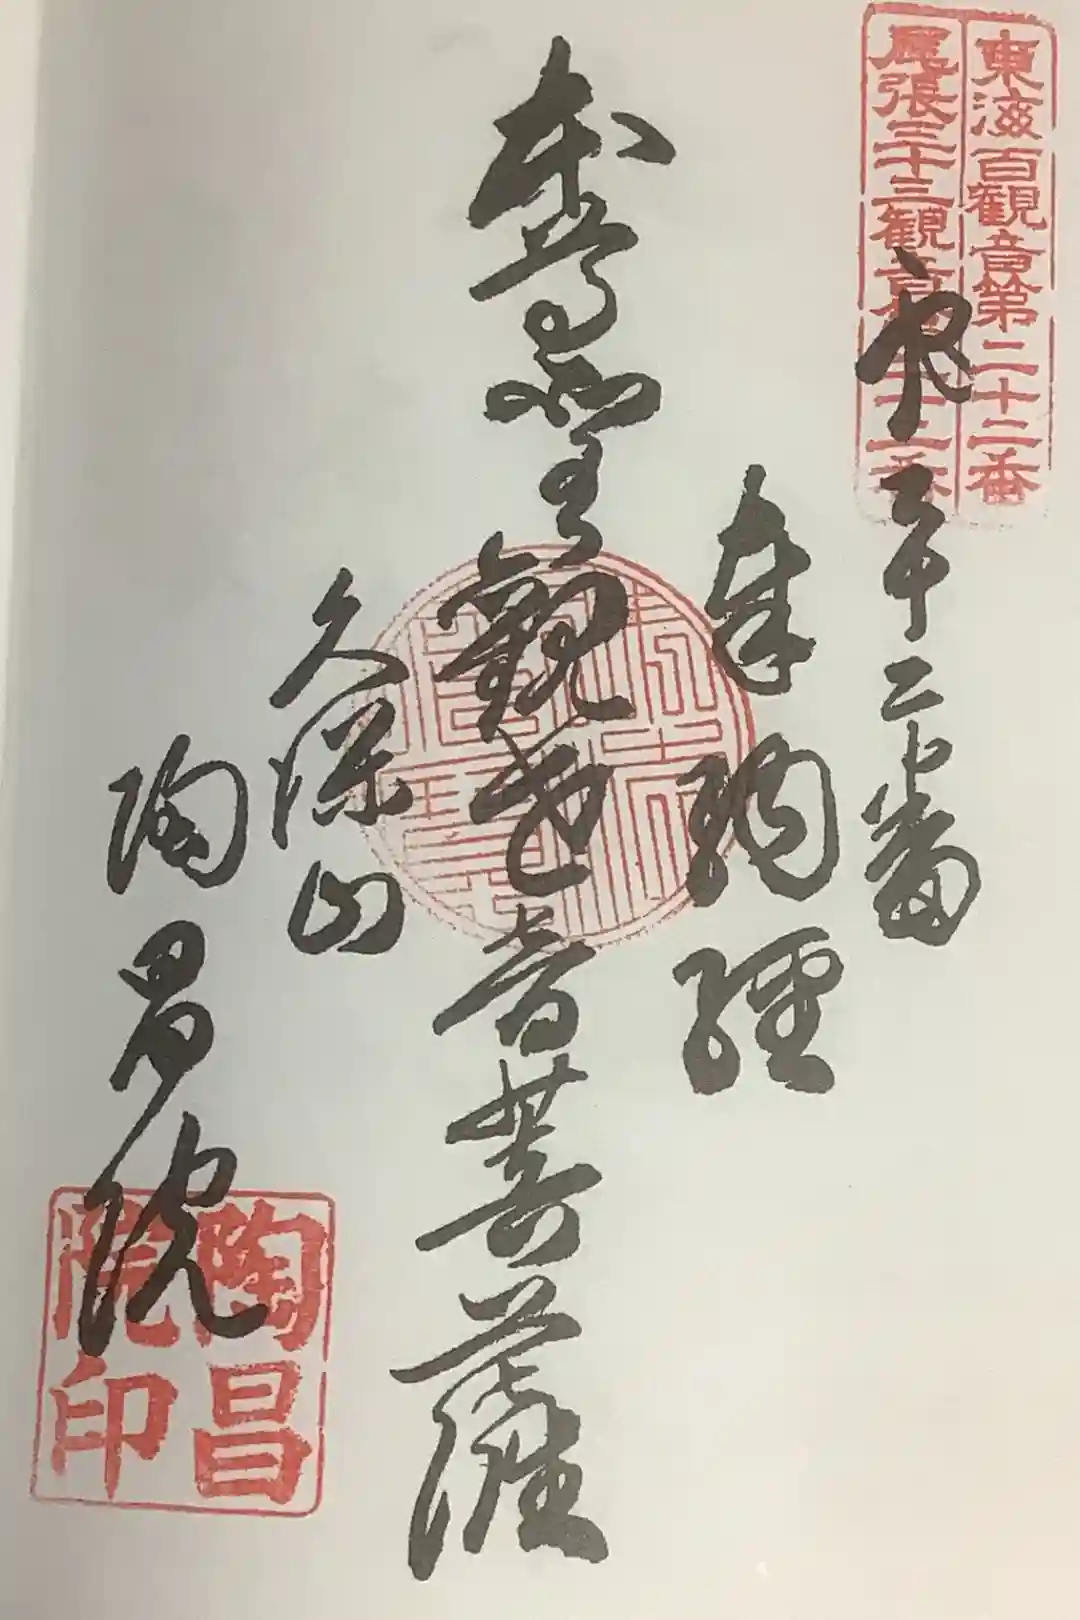 東海百観音第二十二番
尾張三十三観音第二十二番
二十二番
奉納経
本尊聖観世音菩薩
久保山
陶昌院
陶昌
院印